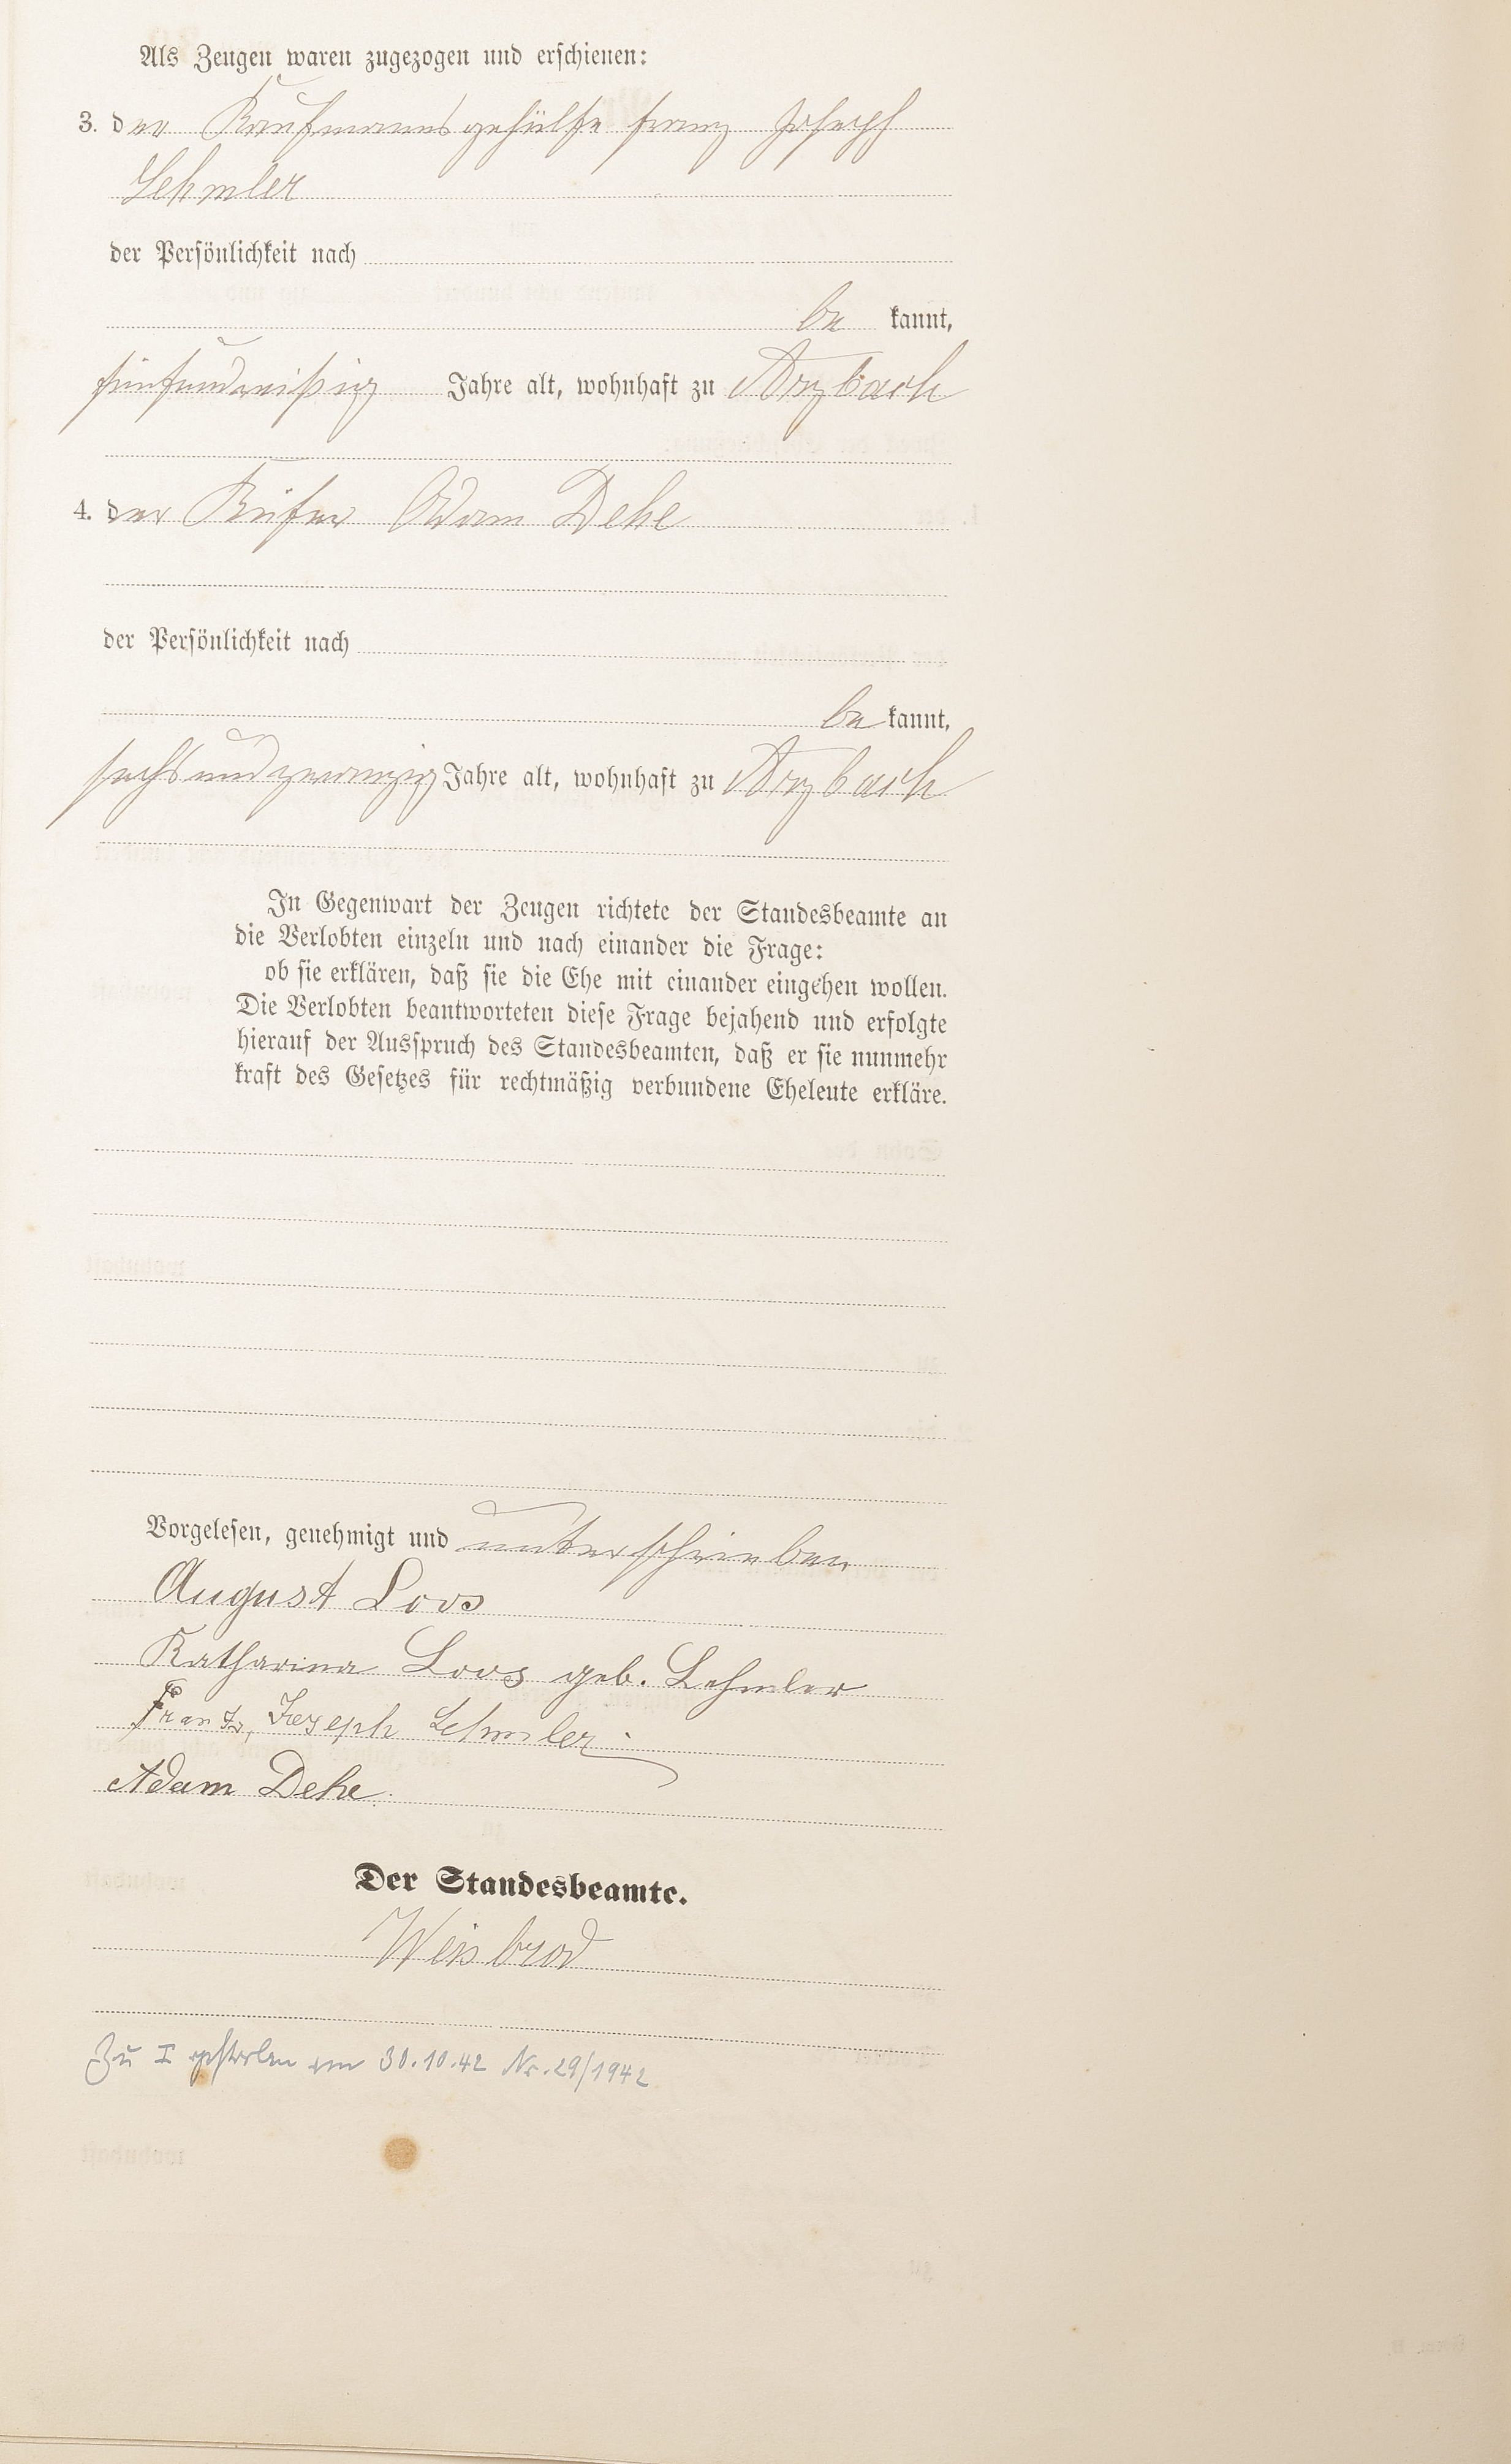 Als Zeugen waren zugezogen und erschienen:
3. der Kaufmannsgehülfe Franz Joseph
Lehmler
der Persönlichkeit nach
be kannt,
fünfunddreißig Jahre alt, wohnhaft zu Arzbach
4. der Küfer Adam Dehe
der Persönlichkeit nach
be kannt,
sechsundzwanzig Jahre alt, wohnhaft zu Arzbach
In Gegenwart der Zeugen richtete der Standesbeamte an
die Verlobten einzeln und nach einander die Frage:
ob sie erklären, daß sie die Ehe mit einander eingehen wollen.
Die Verlobten beantworteten diese Frage bejahend und erfolgte
hierauf der Ausspruch des Standesbeamten, daß er sie nunmehr
kraft des Gesetzes für rechtmäßig verbundene Eheleute erkläre.
Vorgelesen, genehmigt und unterschrieben
August Loos
Katharina Loos geb. Lehmler
Frantz, Joseph Lehmler
Adam Dehe.
Der Standesbeamte.
Weisbrod
Zu I gestorben am 30.10.42 Nr. 29/1942